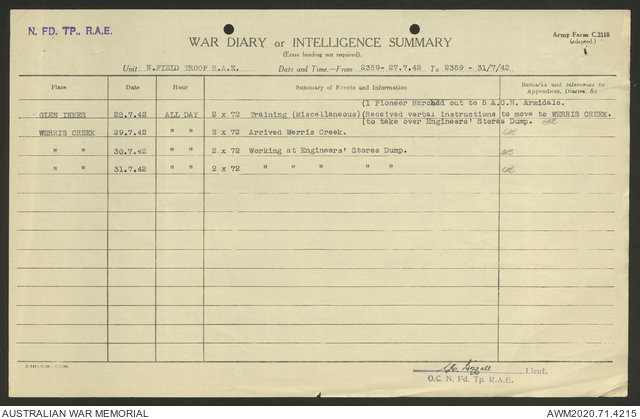 N. FD. TP., R.A.E.
Army Form C.2118
(adapted.)
WAR DIARY or INTELLIGENCE SUMMARY
(Erase heading not required).
Unit N.FIELD TROOP R.A.E. Date and Time.—From 2359- 27.7.42 To 2359 - 31/7/42
Place Date Hour Summary of Events and Information Remarks and references to Appendices, Diaries, &c
(1 Pioneer Marched out to 5 A.G.H. Armidale.
GLEN INNES 28.7.42 ALL DAY 2 x 72 Training (Miscellaneous) (Received verbal instructions to move to WERRIS CREEK.
(to take over Engineers' Stores Dump.
WERRIS CREEK 29.7.42 " " 2 x 72 Arrived Werris Creek.
" " 30.7.42 " " 2 x 72 Working at Engineers' Stores Dump.
" " 31.7.42 " " 2 x 72 " " " " "
Lieut.
O.C. N. Fd. Tp. R.A.E.
AUSTRALIAN WAR MEMORIAL AWM2020.71.4215